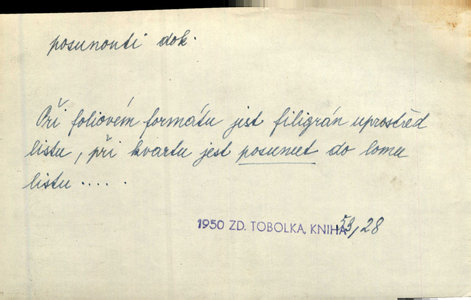 posunouti dok.
Při foliovém formátu jest filigrán uprostřed
listu, při kvartu jest posunut do lomu
listu.....
1950 ZD. TOBOLKA, KNIHA 53, 28